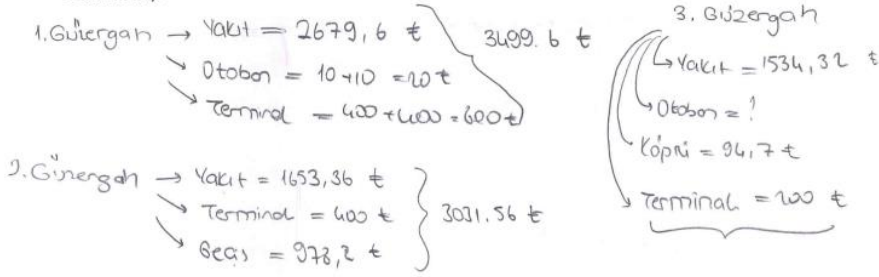 1.Güzergah → Yakıt = 2679,6 ₺
→ Otoban = 10+10 = 20 ₺
→ Terminal = 400+400 = 800 ₺
3499.6 ₺
2.Güzergah → Yakıt = 1653,36 ₺
→ Terminal = 400 ₺
→ Geçiş = 978,2 ₺
3031.56 ₺
3. Güzergah
→ Yakıt = 1534,32 ₺
→ Otoban = ?
Köprü = 94,7 ₺
→ Terminal = 200 ₺